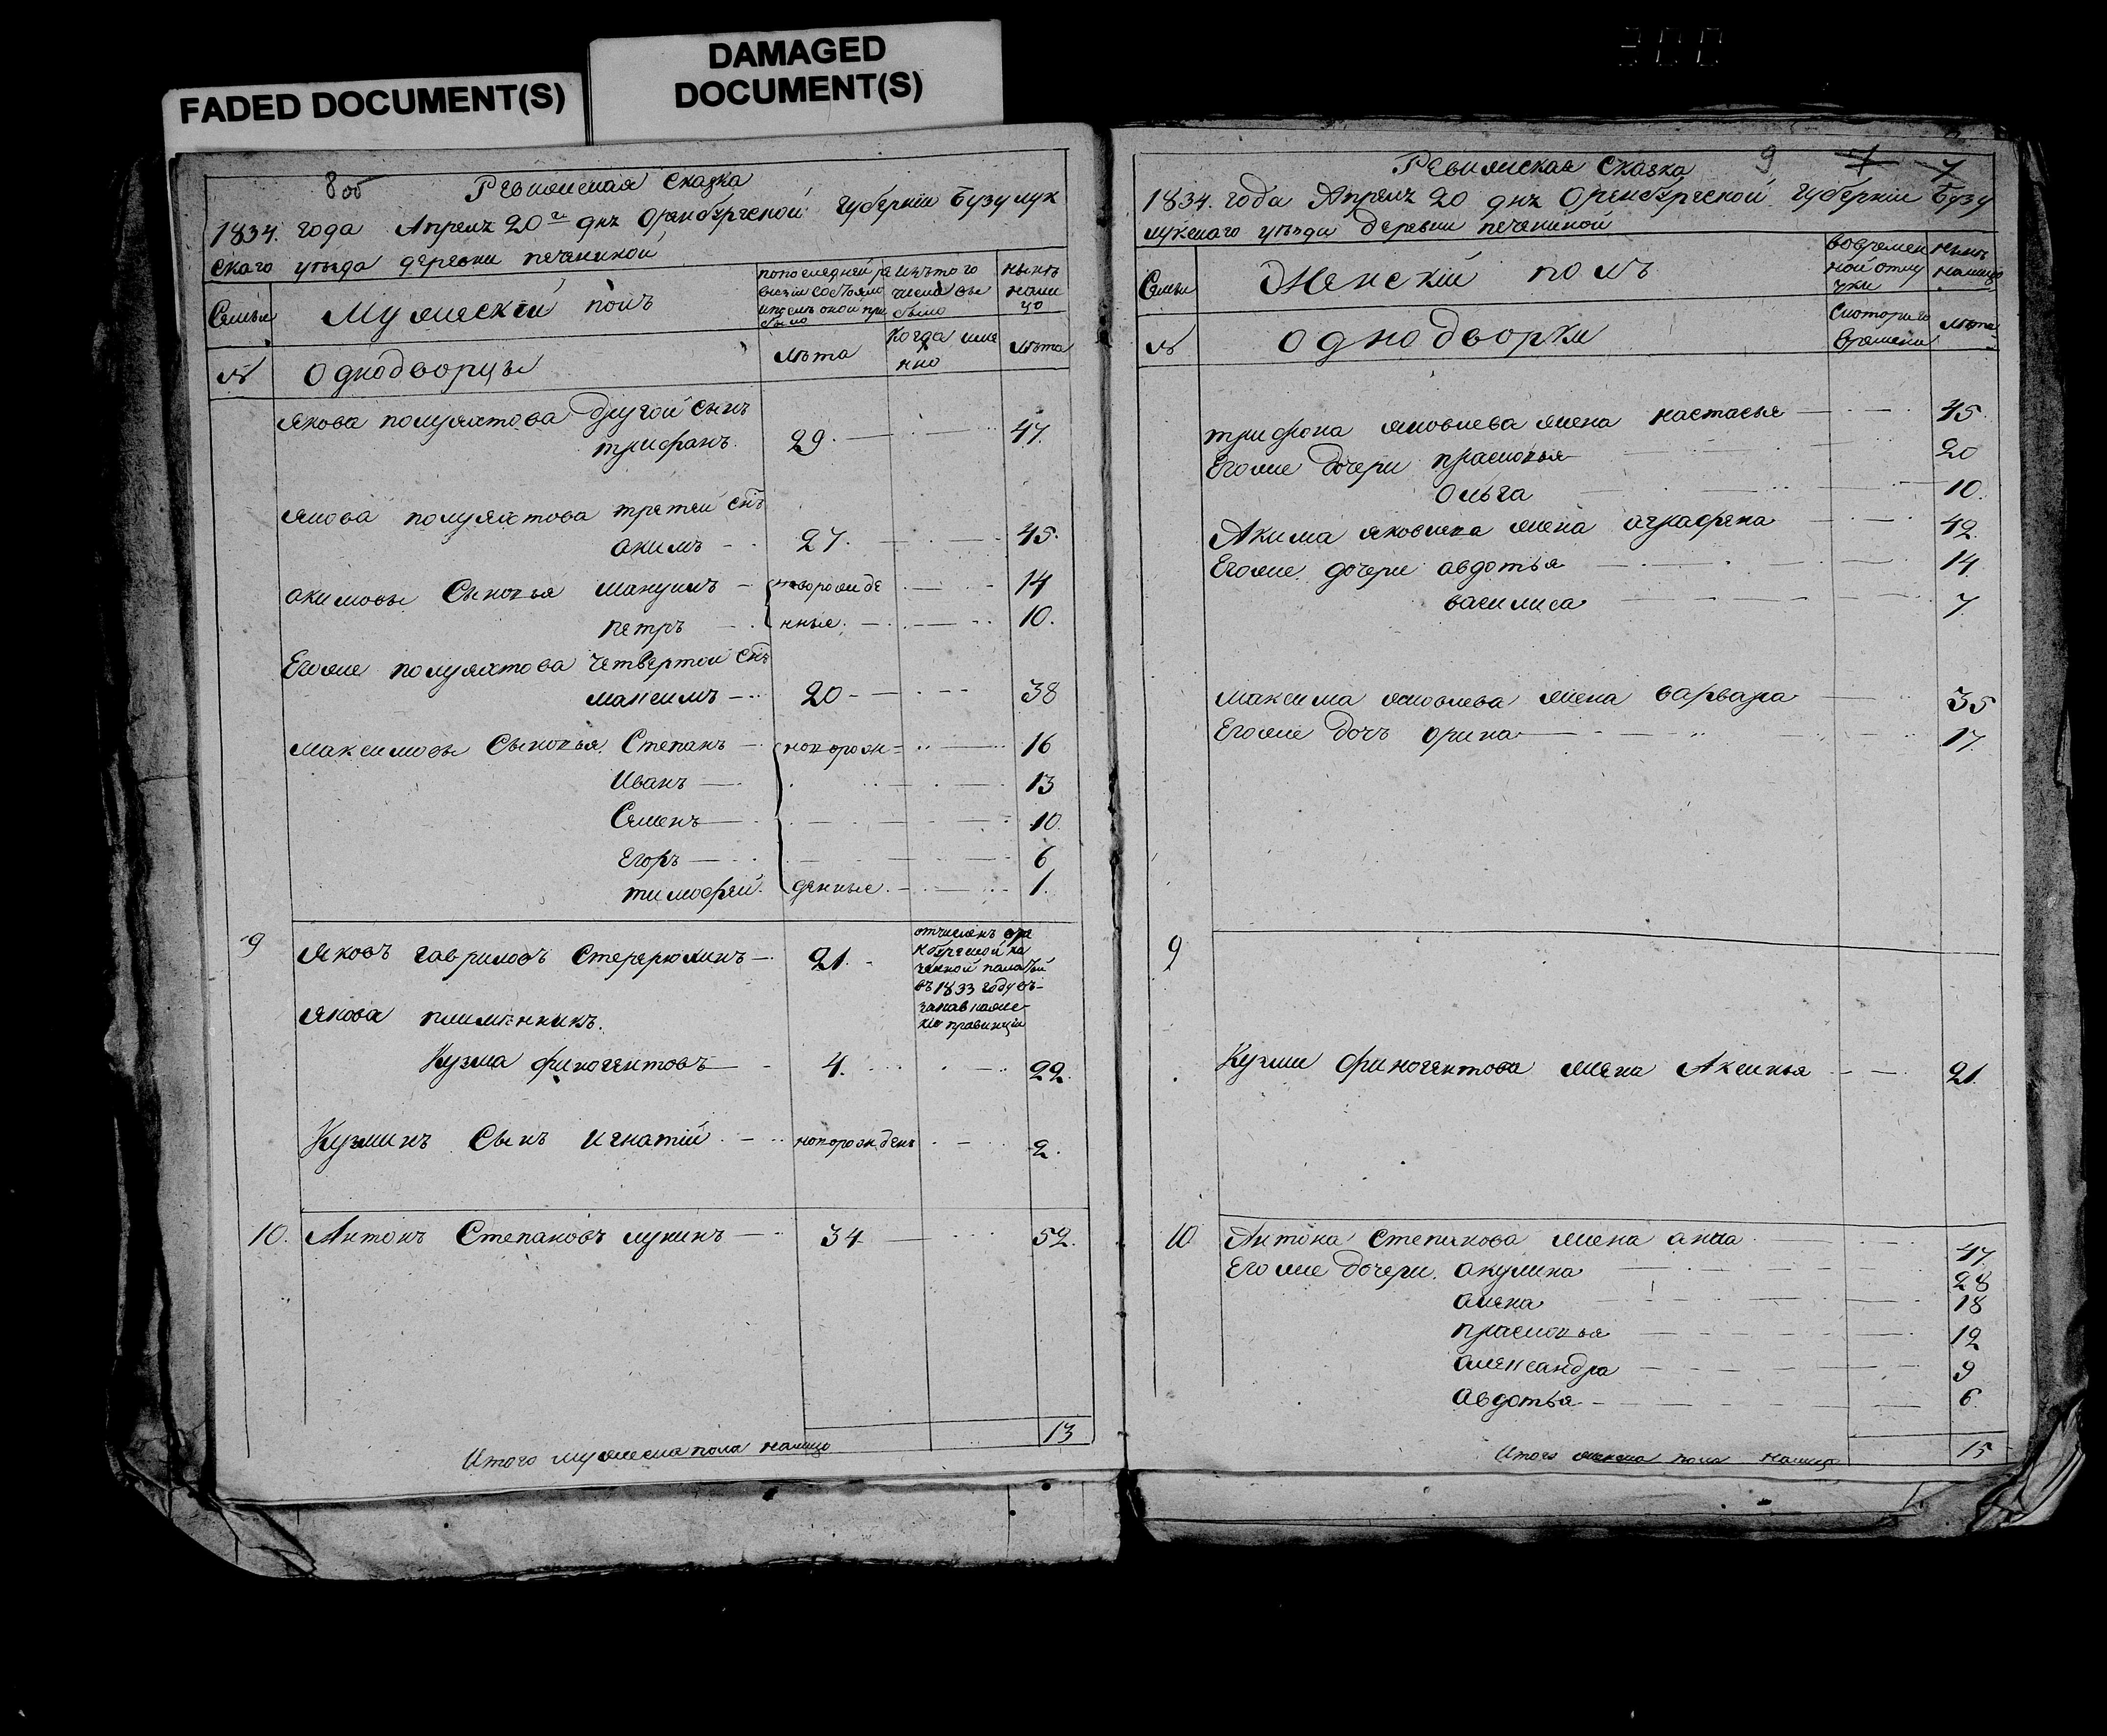 FADED DOCUMENT(S)
DAMAGED
DOCUMENT(S)
8об
Ревижская Сказка
1834. года Апреля 20го дня Оренбургской Губернии Бузулук
скаго уѣзда деревни печениной
Семьи
Мужескiй полъ
попоследней ре
визiи состояло
ипослѣ оной при
было
Изъ того
числа вы
было
нынѣ
нали
цо
№
Однодворцы
лѣта
Когда име
нно
лѣта
Якова полуяхтова другой сынъ
трифанъ. 29. 47.
Якова полуяхтова третей снъ
акимъ 27. 45.
акимовы Сыновья
новорожде
14
петръ нные. 10.
Егоже полуяхтова четвертой снъ
максимъ 20 38
максимовы Сыновья Степанъ новорож 16
Иванъ 13
Семенъ 10.
Егоръ 6
тимофей. денные. 1.
9 Яковъ гавриловъ 21.
отчисленъ оре
нбургской ка
зенной палатой
въ 1833 году
Якова племѣнникъ.
Кузма финогентовъ 4. 22.
Кузминъ Сынъ игнатiй новорожденъ 2.
10. Антонъ Степановъ лунинъ 34 52.
Итого мужеска пола налицо 13
Ревижская Сказка
9 7 7
1834. года Апреля 20 дня Оренбургской Губернии Бузу
лукскаго уѣзда деревни печениной
Семьи
Женскiй полъ
вовремен
ной отлу
чки
нынѣ
налицо
№
Однодворки
Скоторого
времени
лѣта
трифона яковлева жена настасья 45.
Егоже дочери прасковья 20
Ольга 10.
Акима яковлева жена аграфена 42.
Егоже дочери авдотья 14.
василиса 7
максима яковлева жена варвара 35
Егоже дочь орина 17.
9
Кузми финогентова жена Аксинья 21.
10 Антона Степанова жена анна 47.
Егоже дочери. акулина 28
алена 18
прасковья 12
александра 9
авдотья 6
Итого женска пола налицо 15